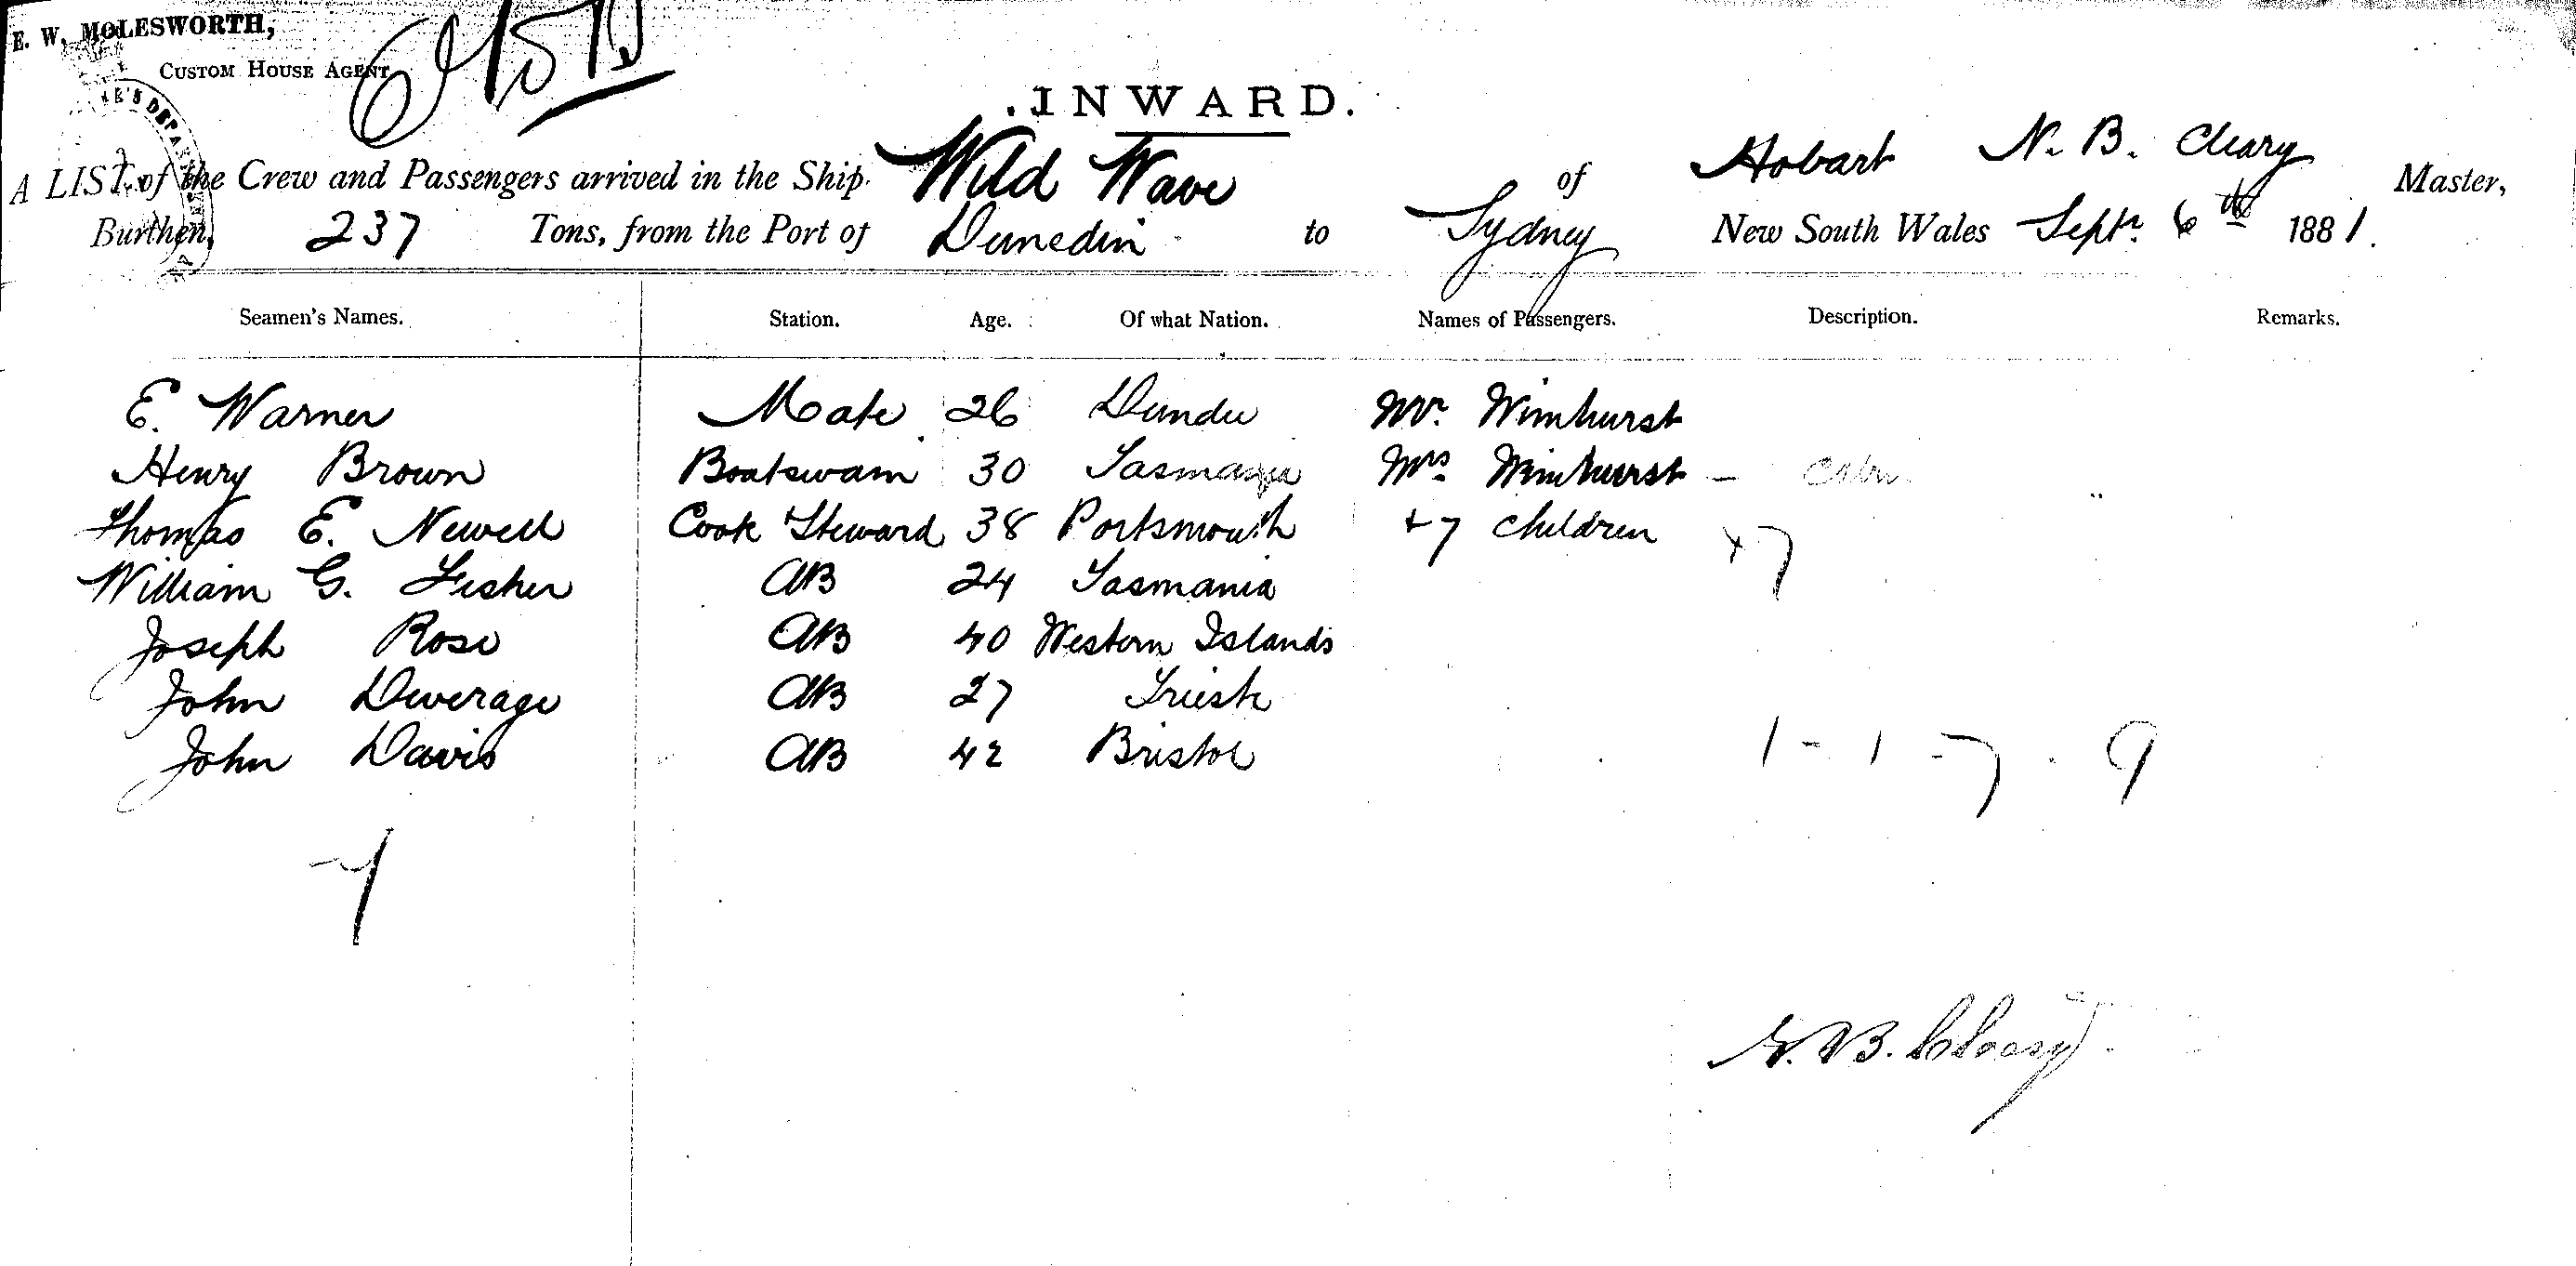 E. W. MOLESWORTH,
CUSTOM HOUSE AGENT
INWARD.
A LIST of the Crew and Passengers arrived in the Ship Wild Wave of Hobart N. B. Cleary Master,
Burthen, 237 Tons, from the Port of Dunedin to Sydney New South Wales Septr. 6th 1881.
Seamen's Names. Station. Age. Of what Nation. Names of Passengers. Description. Remarks.
E. Warner Mate 26 Dundee Mr. Wimhurst
Henry Brown Boatswain 30 Tasmania Mrs Wimhurst –
Thomas E. Newell Cook & Steward 38 Portsmouth + 7 children + 7
William G. Fisher AB 24 Tasmania
Joseph Rose AB 40 Western Islands
John Deverage AB 27 Trieste
John Davis AB 42 Bristol
1 - 1 - 7 . 9
7
N. B. Cleary